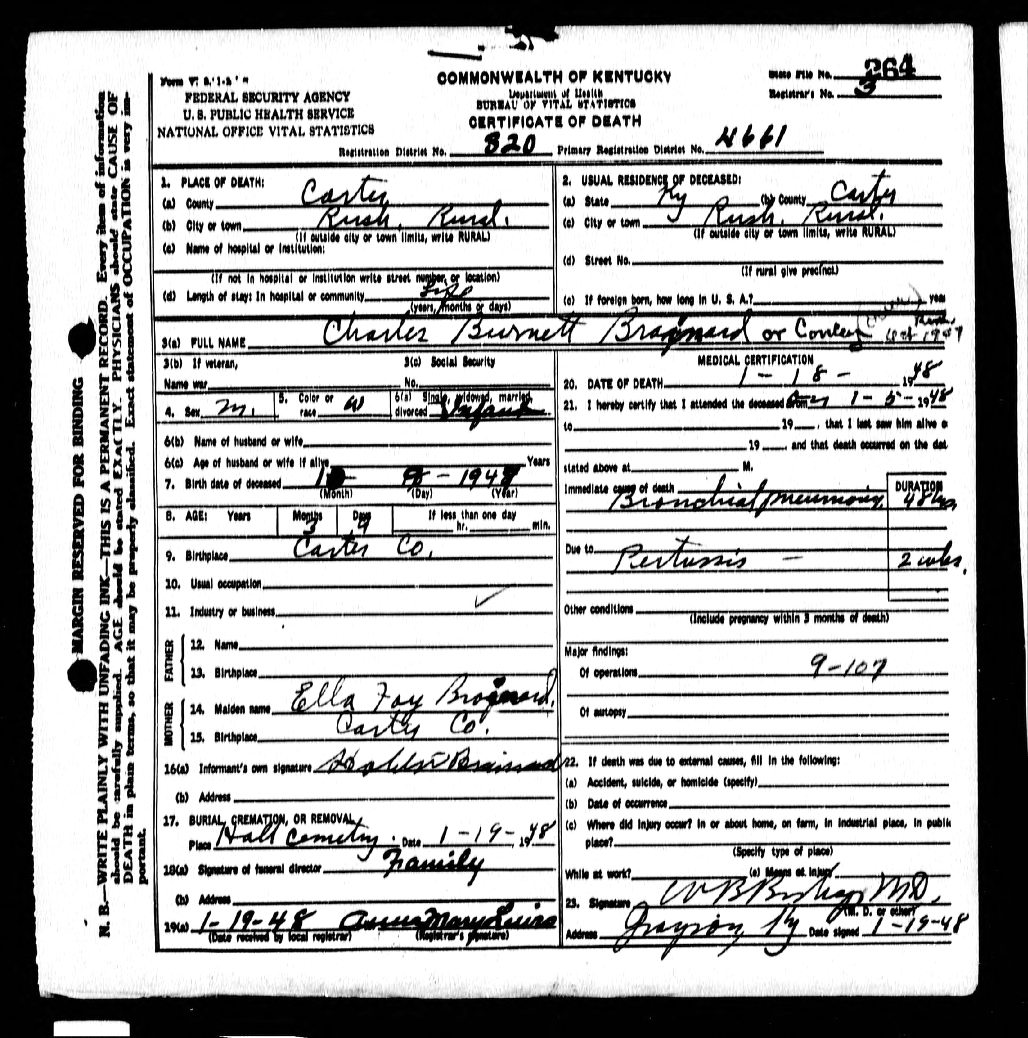 264
Form V. S. 1-A
COMMONWEALTH OF KENTUCKY
State File No.
FEDERAL SECURITY AGENCY
Department of Health
Registrar's No. 3
U. S. PUBLIC HEALTH SERVICE
BUREAU OF VITAL STATISTICS
NATIONAL OFFICE VITAL STATISTICS
CERTIFICATE OF DEATH
Registration District No. 820 Primary Registration District No. 4661
MARGIN RESERVED FOR BINDING
N. B.—WRITE PLAINLY WITH UNFADING INK—THIS IS A PERMANENT RECORD. Every item of information
should be carefully supplied. AGE should be stated EXACTLY. PHYSICIANS should state CAUSE OF
DEATH in plain terms, so that it may be properly classified. Exact statement of OCCUPATION is very im-
portant.
1. PLACE OF DEATH:
(a) County Carter
(b) City or town Rush, Rural.
(If outside city or town limits, write RURAL)
(c) Name of hospital or institution:
(If not in hospital or institution write street number, or location)
(d) Length of stay: In hospital or community Life
(years, months or days)
2. USUAL RESIDENCE OF DECEASED:
(a) State Ky (b) County Carter
(c) City or town Rush, Rural.
(If outside city or town limits, write RURAL)
(d) Street No.
(If rural give precinct)
(e) If foreign born, how long in U. S. A.? year
3(a) FULL NAME Charles Burnett Brainard or Conley
1947
3(b) If veteran,
Name war
3(c) Social Security
No.
4. Sex M.
5. Color or
race W
6(a) Single, widowed, married,
divorced Infant
6(b) Name of husband or wife
6(c) Age of husband or wife if alive Years
7. Birth date of deceased
(Month) (Day) (Year)
8. AGE: Years Months Days If less than one day
3 9 hr. min.
9. Birthplace Carter Co.
10. Usual occupation
11. Industry or business
FATHER
12. Name
13. Birthplace
MOTHER
14. Maiden name Ella Fay Brainard,
15. Birthplace Carter Co.
16(a) Informant's own signature Brainard
(b) Address
17. BURIAL, CREMATION, OR REMOVAL
Place Hall Cemetry. Date 1-19-, 1948
18(a) Signature of funeral director Family
(b) Address
19(a) 1-19-48 Anna Mary
(Date received by local registrar) (Registrar's signature)
MEDICAL CERTIFICATION
20. DATE OF DEATH 1-18- 1948
21. I hereby certify that I attended the deceased from 1-5-1948
to 19 , that I last saw him alive o
19 and that death occurred on the dat
stated above at M.
Immediate cause of death DURATION
Bronchial pneumonia, 48 hrs
Due to Pertussis — 2 wks.
Other conditions
(Include pregnancy within 3 months of death)
Major findings:
Of operations 9-107
Of autopsy
22. If death was due to external causes, fill in the following:
(a) Accident, suicide, or homicide (specify)
(b) Date of occurrence
(c) Where did injury occur? In or about home, on farm, in industrial place, in public
place?
(Specify type of place)
While at work? (e) Means of injury
23. Signature W B M.D.
(M. D. or other)
Address Grayson, Ky Date signed 1-19-48